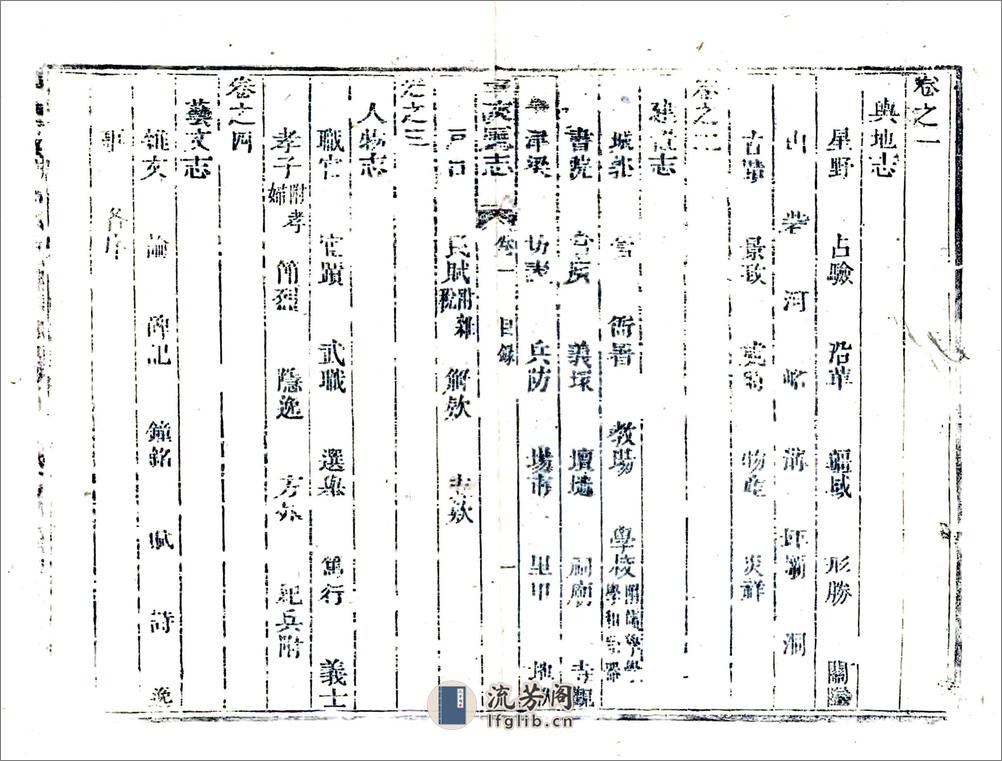 卷之一
輿地志
星野 占驗 沿革 疆域 形勝 關隘
山 河 洞
古蹟 景致 物產 災祥
卷之二
建置志
城郭 衙署 教場 學校
書院 義塚 壇壝 祠廟 寺觀
津梁 坊表 兵防 場市 里甲
志 卷一 目錄 一
戶口 民賦附雜 解欵 支欵
卷之三
人物志
職官 宦蹟 武職 選舉 篤行 義士
孝子附孝婦 節烈 隱逸 方外 紀兵附
卷之四
藝文志
雜文 論 碑記 鐘銘 賦 詩
各序
流芳阁
lfglib.cn